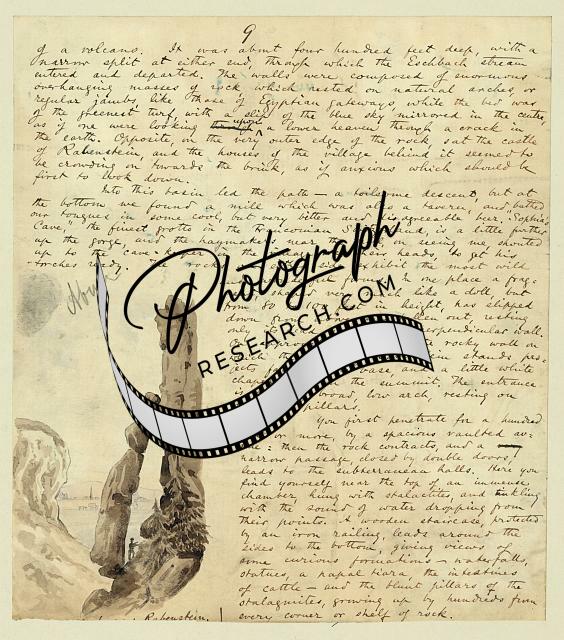 9
of a volcano. It was about four hundred feet deep, with a
narrow split at either end, through which the Eschbach stream
entered and departed. The walls were composed of enormous
overhanging masses of rock which rested on natural arches, or
regular jambs, like those of Egyptian gateways, while the bed was
of the greenest turf, with a slip of the blue sky mirrored in the centre,
as if one were looking upon a lower heaven through a crack in
the earth. Opposite, on the very outer edge of the rock, sat the castle
of Rabenstein, and the houses of the village behind it seemed to
be crowding on towards the brink, as if anxious which should be
first to look down.
Into this basin led the path — a toilsome descent, but at
the bottom we found a mill which was also a tavern, and bathed
our tongues in some cool, but very bitter and disagreeable beer. "Sophia's
Cave," the finest grotto in the Franconian is a little further
up the gorge, and the haymakers near the on seeing me, shouted
up to the cave-keeper their heads, to get his
torches ready. The rocks exhibit the most wild
in one place a frog-
like a doll, but
from 80 to 100 feet in height, has slipped
down out, resting
only perpendicular wall.
rocky wall on
stands pro-
jects base, and a little white
chapel the summit. The entrance
is broad, low arch, resting on
pillars.
You first penetrate for a hundred
or more, by a spacious vaulted av-
: then the rock contracts and a
narrow passage closed by double doors,
leads to the subterranean halls. Here you
find yourself near the top of an immense
chamber, hung with stalactites, and tinkling
with the sound of water dropping from
their points. A wooden staircase, protected
by an iron railing, leads around the
sides to the bottom, giving views of
some curious formations — waterfalls,
statues, a papal tiara, the intestines
of cattle — and the blunt pillars of the
stalagmites, growing up by hundreds from
every corner or shelf of rock.
Rabenstein.
Photograph
RESEARCH.COM